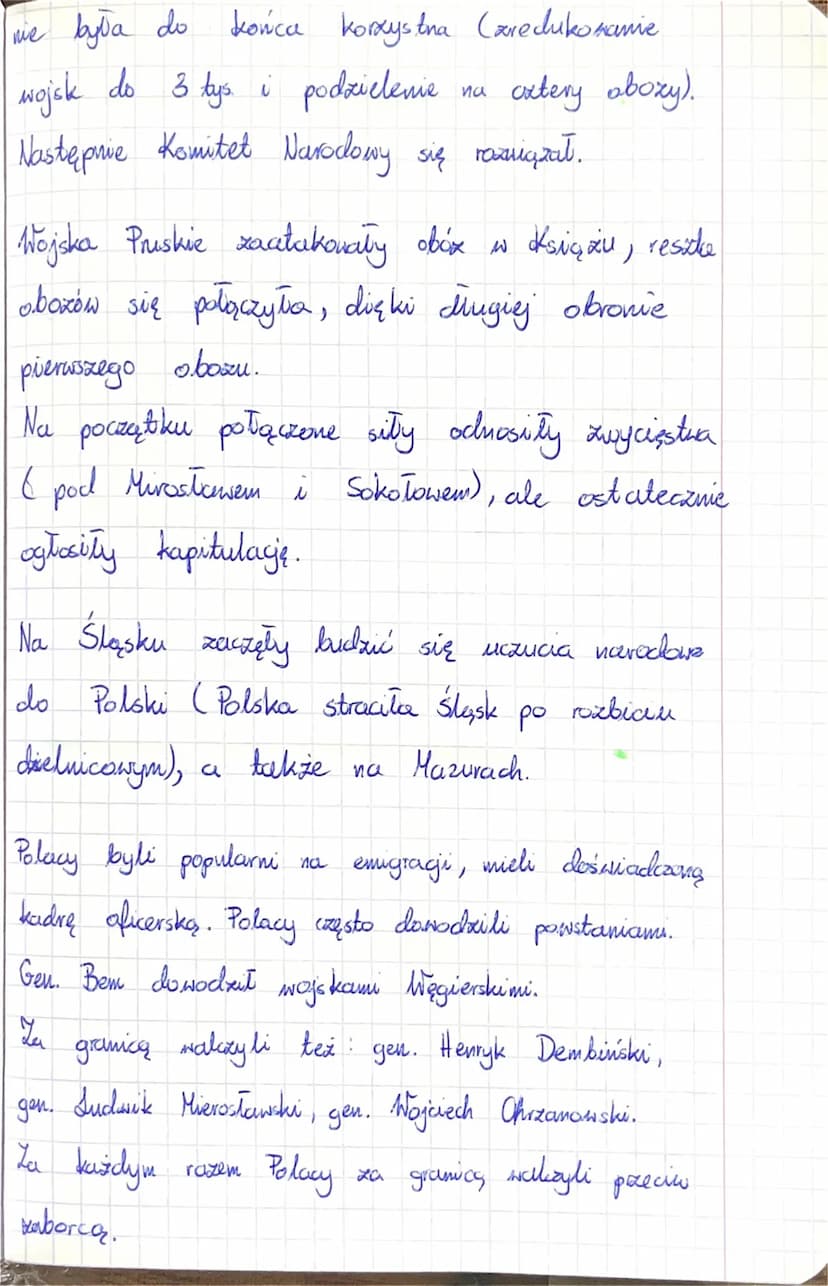 nie była do końca korzystna (zredukowanie
wojsk do 3 tys. i podzielenie na cztery obozy).
Następnie Komitet Narodowy się rozwiązał.
Wojska Pruskie zaatakowały obóz w Książu, reszta
obozów się połączyła, dięki długiej obronie
pierwszego obozu.
Na początku połączone siły odnosiły zwycięstwa
(pod Mirosławem i Sokołowem), ale ostatecznie
ogłosiły kapitulację.
Na Śląsku zaczęły budzić się uczucia narodowe
do Polski (Polska straciła Śląsk po rozbiciu
dzielnicowym), a także na Mazurach.
Polacy byli popularni na emigracji, mieli doświadczoną
kadrę oficerską. Polacy często dowodzili powstaniami.
Gen. Bem dowodził wojskami Węgierskimi.
Za granicą walczyli też: gen. Henryk Dembiński,
gen. Ludwik Mierosławski, gen. Wojciech Chrzanowski.
Za każdym razem Polacy za granicą walczyli przeciw
zaborcą.